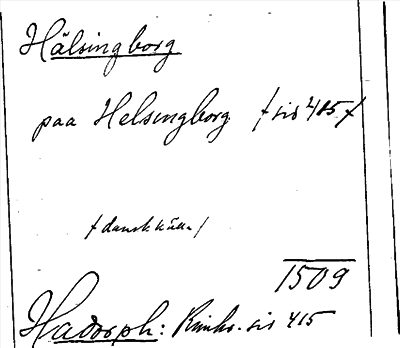 Hälsingborg
paa Helsingborg / sid 415 /
/ dansk källa /
1509
Hadorph: Rimkr. sid 415